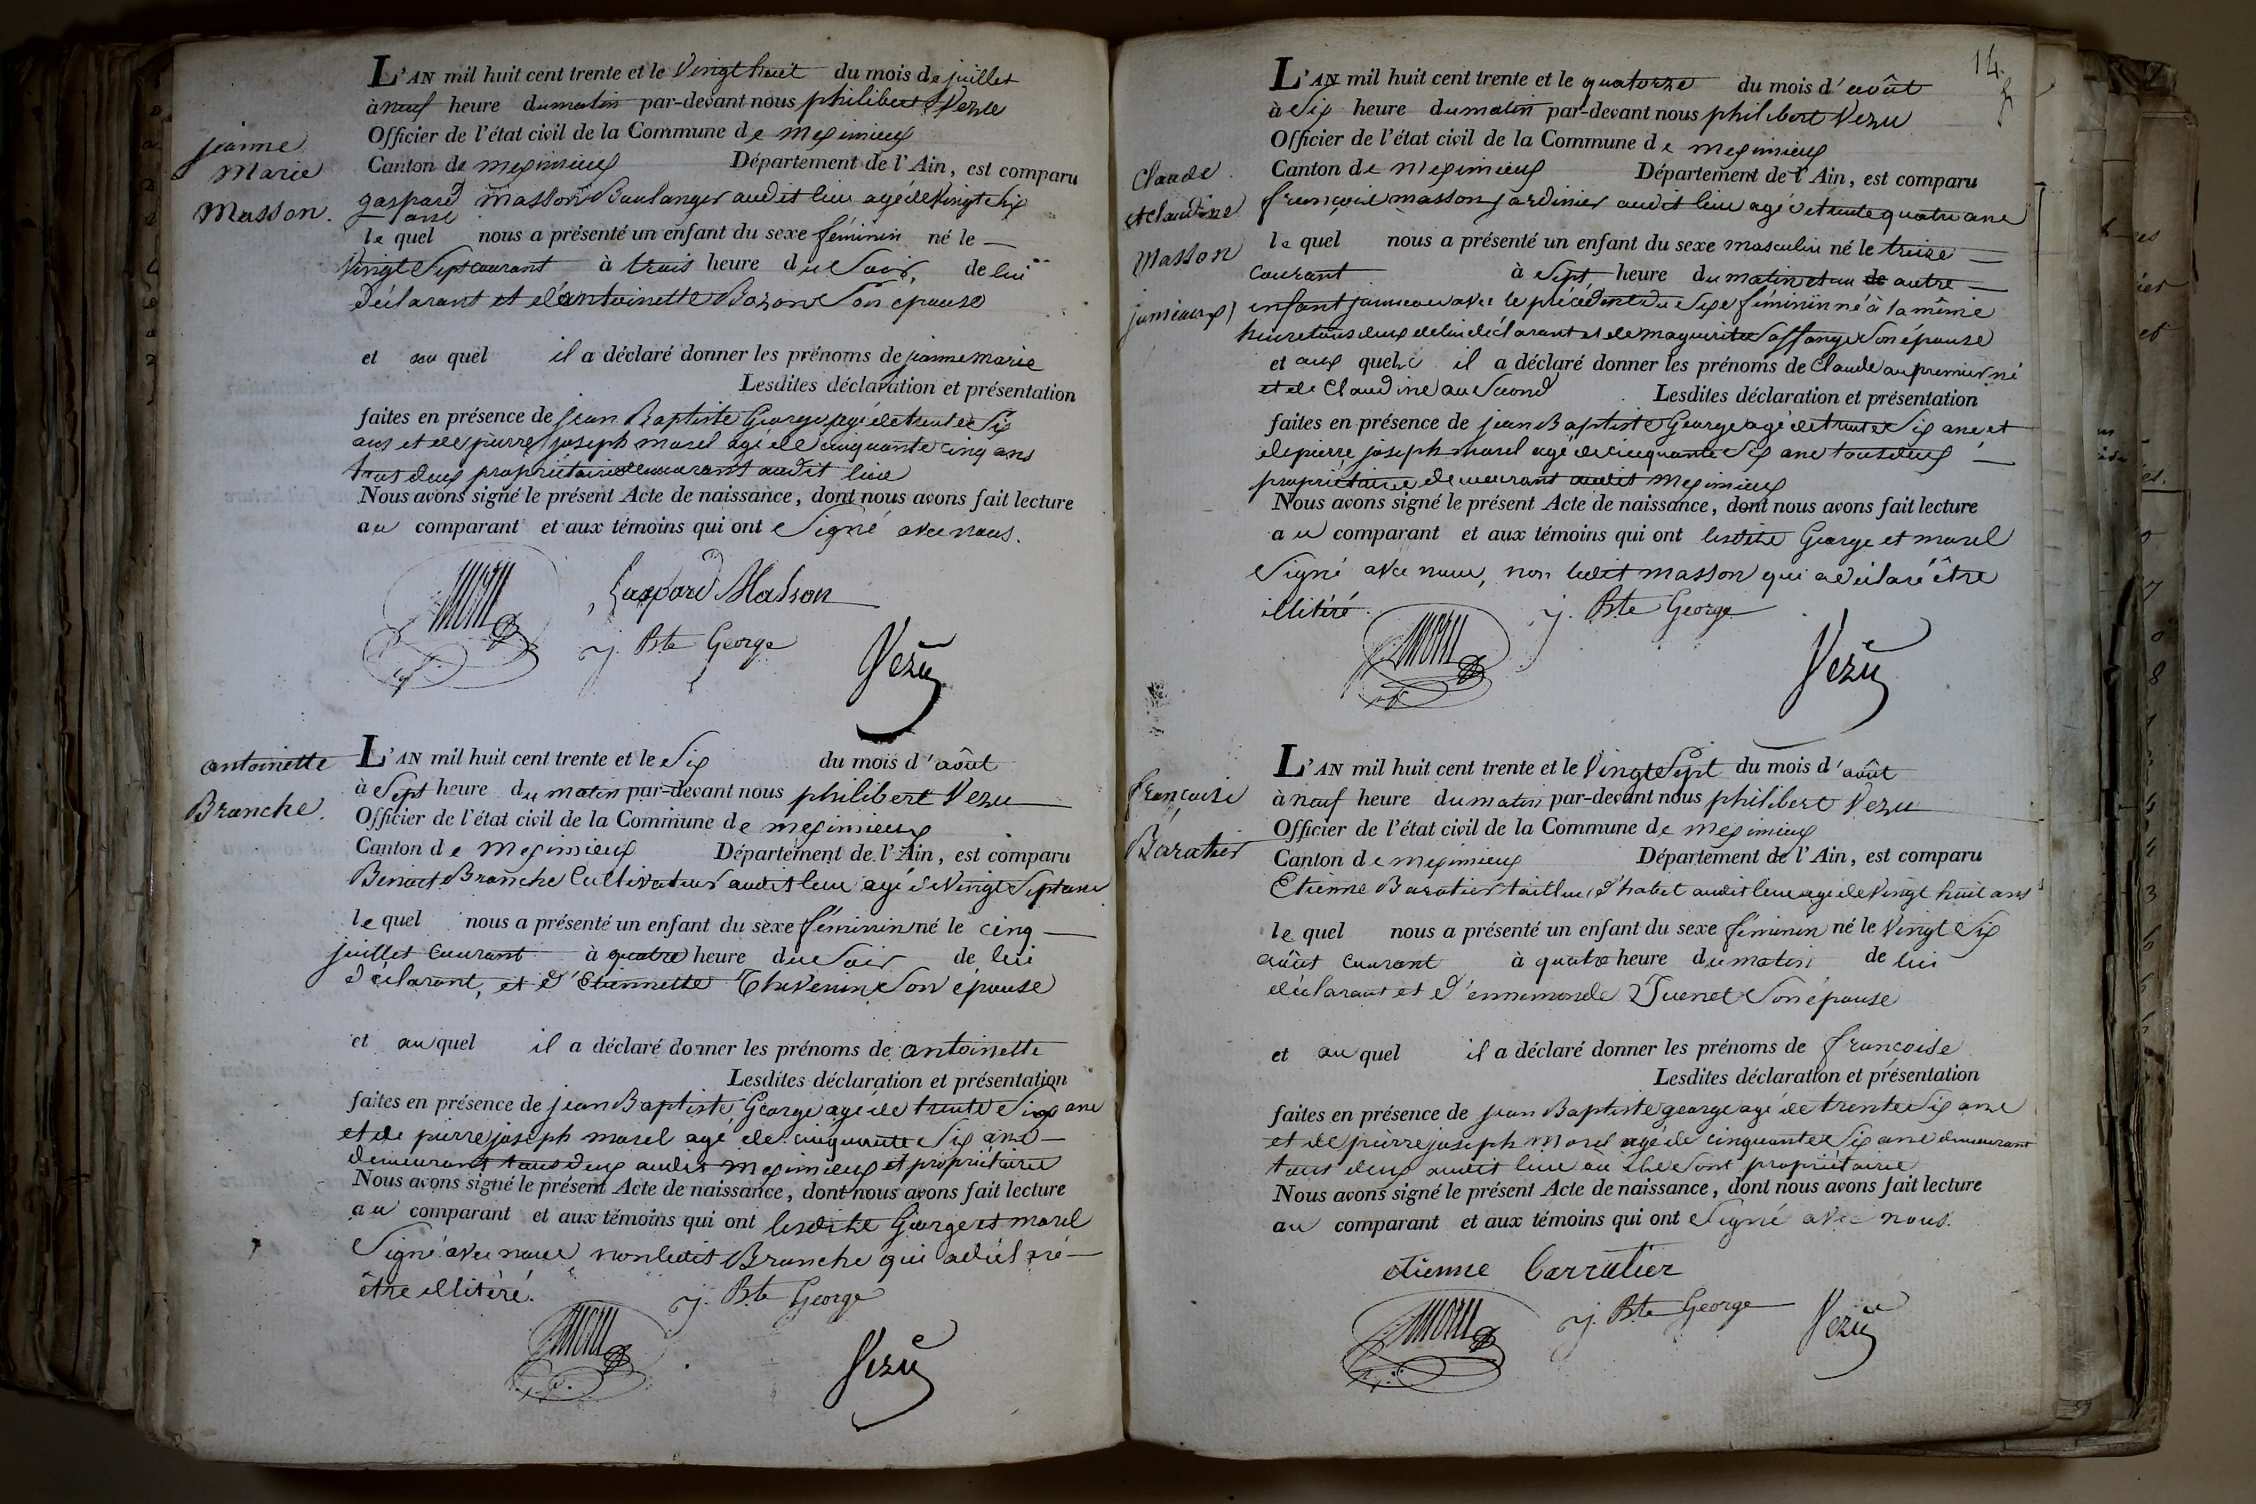 jeanne
Marie
Masson.
L'AN mil huit cent trente et le Vingt huit du mois de juillet
à neuf heure du matin par-devant nous philibert Vezu
Officier de l'état civil de la Commune de meximieux
Canton de meximieux Département de l'Ain, est comparu
gaspard masson Boulanger audit lieu agé de Vingt Six
ans
le quel nous a présenté un enfant du sexe féminin né le
Vingt Sept courant à trois heure du Soir, de lui
déclarant et d'antoinette Bozon Son épouse
et au quel il a déclaré donner les prénoms de jeanne marie
Lesdites déclaration et présentation
faites en présence de jean Baptiste George agé de trente Six
ans et de pierre joseph morel agé de cinquante cinq ans
tous deux propriétaires demeurant audit lieu
Nous avons signé le présent Acte de naissance, dont nous avons fait lecture
au comparant et aux témoins qui ont Signé avec nous.
Gaspard Masson
j. Bte George
Vezu
antoinette
Branche.
L'AN mil huit cent trente et le Six du mois d'août
à Sept heure du matin par-devant nous philibert Vezu
Officier de l'état civil de la Commune de meximieux
Canton de Meximieux Département de l'Ain, est comparu
Benoit Branche Cultivateur audit lieu agé de Vingt Sept ans
le quel nous a présenté un enfant du sexe féminin né le cinq
juillet courant à quatre heure du Soir de lui
déclarant, et d'Etiennette Thevenin Son épouse
et au quel il a déclaré donner les prénoms de antoinette
Lesdites déclaration et présentation
faites en présence de jean Baptiste George agé de trente Six ans
et de pierre joseph morel agé de cinquante Six ans
demeurant tous deux audit meximieux et propriétaires
Nous avons signé le présent Acte de naissance, dont nous avons fait lecture
au comparant et aux témoins qui ont lesdits George et morel
Signé avec nous, non ledit Branche qui a déclaré
être illitéré.
j. Bte George
Vezu
14.
Claude
et claudine
Masson
jumeaux)
L'AN mil huit cent trente et le quatorze du mois d'août
à Six heure du matin par-devant nous philibert Vezu
Officier de l'état civil de la Commune de meximieux
Canton de Meximieux Département de l'Ain, est comparu
françois masson jardinier audit lieu agé de trente quatre ans
le quel nous a présenté un enfant du sexe masculin né le treize
courant à Sept heure du matin et un de autre
enfant jumeau avec le précédent du Sexe féminin né à la même
heure tous deux de lui déclarant et de Marguerite Soffange Son épouse
et aux quels il a déclaré donner les prénoms de Claude au premier né
et de Claudine au Second Lesdites déclaration et présentation
faites en présence de jean Baptiste George agé de trente Six ans et
de pierre joseph morel agé de cinquante Six ans tous deux
propriétaires demeurant audit Meximieux
Nous avons signé le présent Acte de naissance, dont nous avons fait lecture
au comparant et aux témoins qui ont lesdits George et morel
Signé avec nous, non ledit masson qui a déclaré être
illitéré.
j. Bte George
Vezu
françoise
Baratier
L'AN mil huit cent trente et le Vingt Sept du mois d'août
à neuf heure du matin par-devant nous philibert Vezu
Officier de l'état civil de la Commune de Meximieux
Canton de meximieux Département de l'Ain, est comparu
Etienne Baratier tailleur d'habit audit lieu agé de Vingt huit ans
le quel nous a présenté un enfant du sexe féminin né le Vingt Six
août courant à quatre heure du matin de lui
déclarant et d'ennemonde Juenet Son épouse
et au quel il a déclaré donner les prénoms de françoise
Lesdites déclaration et présentation
faites en présence de jean Baptiste george agé de trente Six ans
et de pierre joseph Morel agé de cinquante Six ans demeurant
tous deux audit lieu où ils Sont propriétaires
Nous avons signé le présent Acte de naissance, dont nous avons fait lecture
au comparant et aux témoins qui ont Signé avec nous.
etienne Barratier
j. Bte George
Vezu